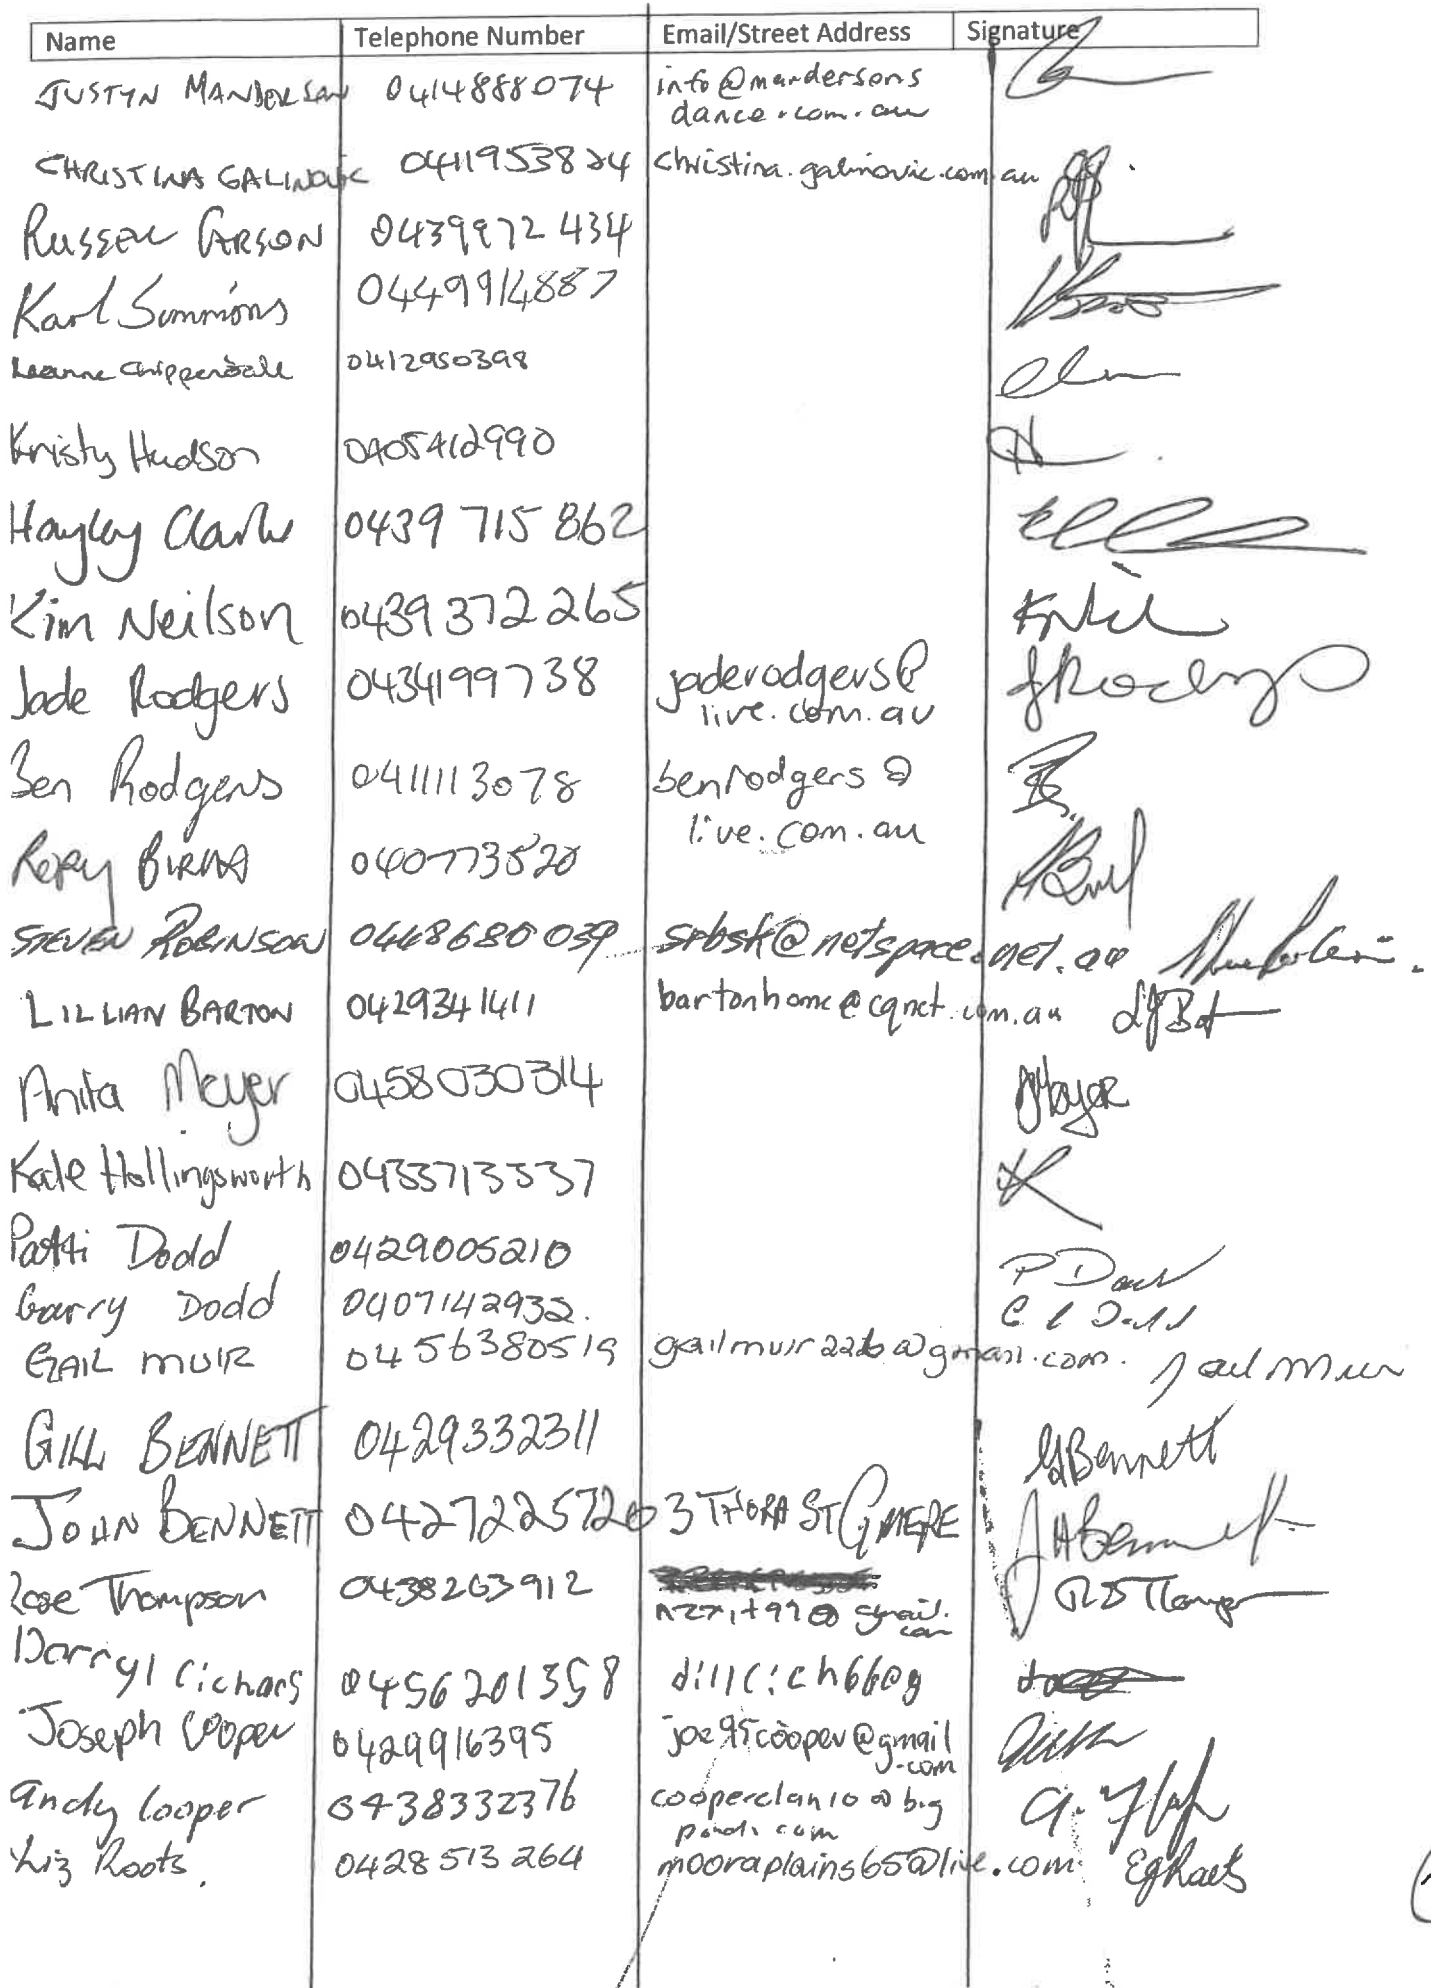 Name Telephone Number Email/Street Address Signature
JUSTYN MANDERSAN 0414888074 info@mandersons
dance.com.au
CHRISTINA GALINOVIC 0411953824 christina.galinovic.com.au
RUSSELL CARSON 0439972 434
Karl Simmons 0449914887
Leanne Chippendale 0412950398
Kristy Hudson 0405412990
Hayley Clarke 0439 715 862
Kim Neilson 0439 372 265
Jade Rodgers 0434199738 jaderodgers@
live.com.au
Ben Rodgers 0411113078 benrodgers@
live.com.au
Rory 040773520
STEVEN ROBINSON 0448680039 srbsk@netspace.net.au
LILLIAN BARTON 0429341411 bartonhome@cqnet.com.au
Anita Meyer 0458030314 AMeyer
Kate Hollingsworth 0433713537
Patti Dodd 0429005210 P Dodd
Garry Dodd 0407142932.
GAIL MUIR 0456380519 gailmuir226@gmail.com. Gail Muir
GILL BENNETT 0429332311 GBennett
JOHN BENNETT 0427225720 3 THORA ST G/MERE JHBennett
Rose Thompson 0438263912
@gmail.
com
Darryl Cichars 0456201358 dillcich66@g
Joseph Cooper 0429916395 joe95cooper@gmail
.com
Andy Cooper 0438332376 cooperclan10@big
pond.com
Liz Roots. 0428 513 264 mooraplains65@live.com